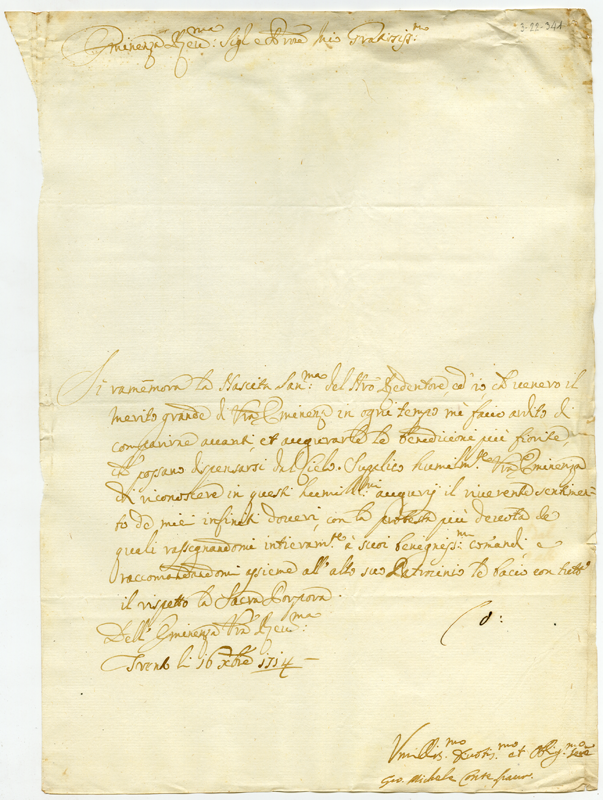 3-22-341
Eminenza Reu:ma Sig.r e Pron mio Gratiosis:mo
Si ramemora la Nascita San:ma del Nro Redentore, ed io, ch' uenero il
merito grande di Vra Eminenza in ogni tempo mi faccio ardito di
comparirne auanti, et augurarle le benedizione più fiorite,
ch' possano dispensarsi dal Cielo. Suplico humilm:te Vra Eminenza
di riconoscere in questi humill:mi augurij il riuerente sentimen-
to de miei infiniti doueri, con la protesta più deuota de
quali rassegnandomi intieram:te à suoi benegniss:mi comandi, e
raccomandandomi assieme all' alto suo Patrocinio le bacio con tutto
il rispetto la Sacra Porpora.
Dell' Eminenza Vra Reu:ma
Trento li 16 Xbre 1714
Vmillis:mo Deuotis:mo et Oblig:mo Seruo
Gio. Michele Conte